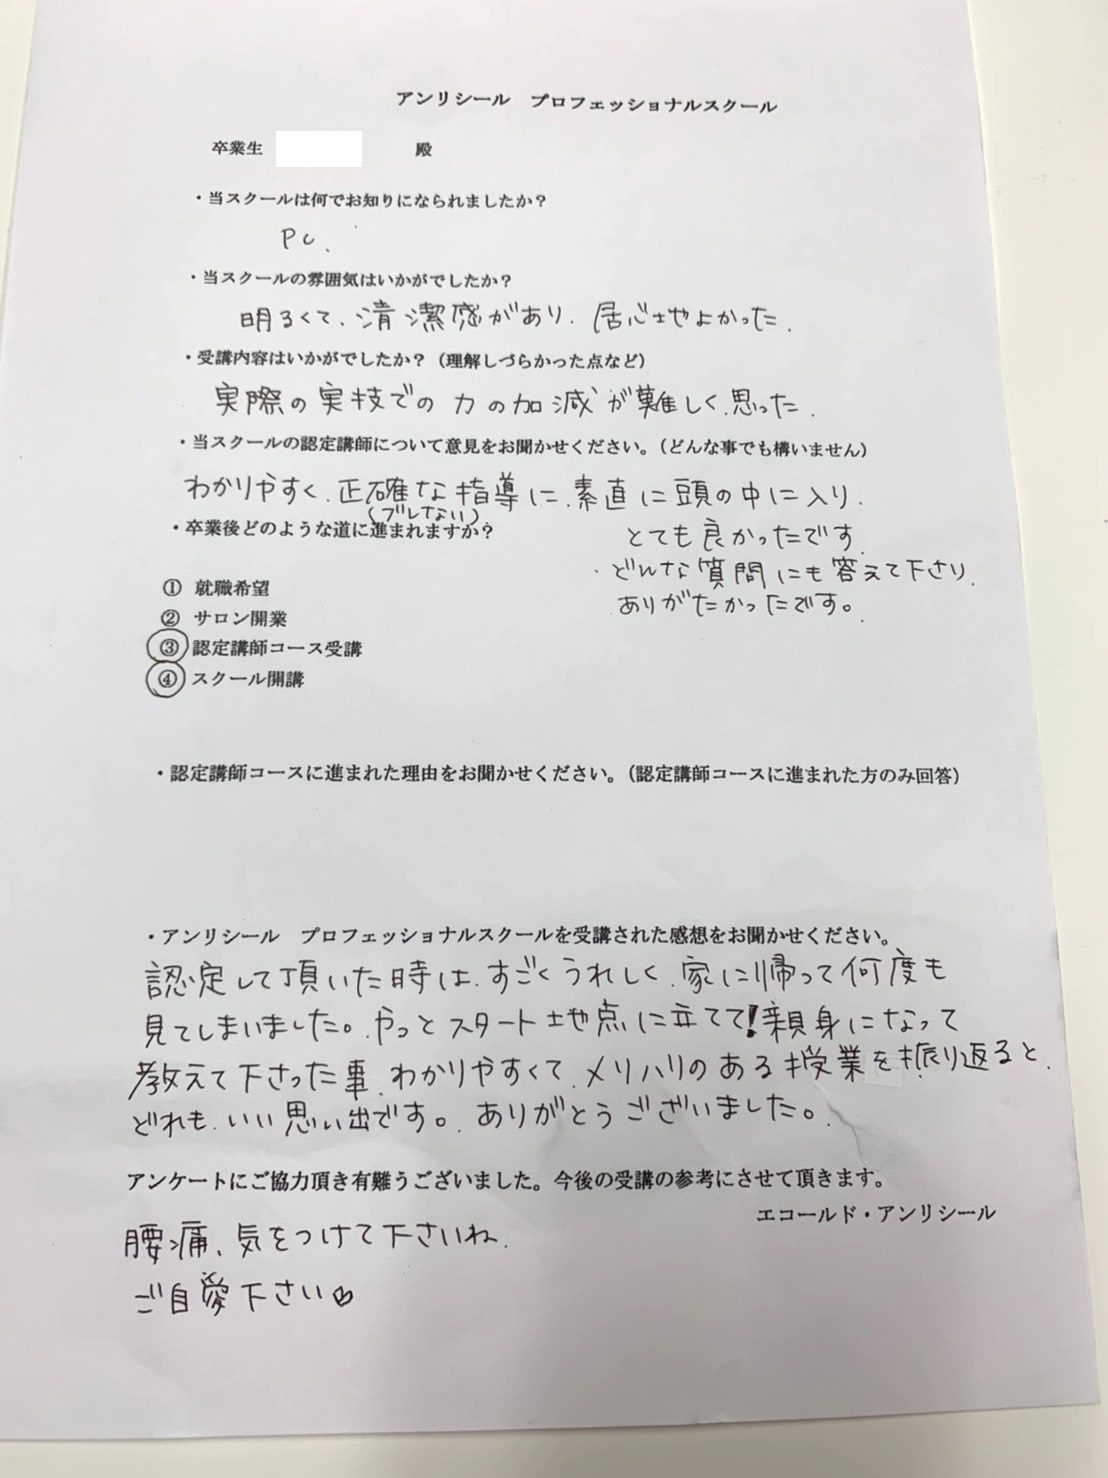 アンリシール　プロフェッショナルスクール
卒業生　　　　殿
・当スクールは何でお知りになられましたか？
PC.
・当スクールの雰囲気はいかがでしたか？
明るくて、清潔感があり、居心地よかった.
・受講内容はいかがでしたか？（理解しづらかった点など）
実際の実技での力の加減が難しく思った.
・当スクールの認定講師について意見をお聞かせください。（どんな事でも構いません）
わかりやすく、正確な指導に、素直に頭の中に入り、
（ブレない）
とても良かったです.
・どんな質問にも答えて下さり、
ありがたかったです。
・卒業後どのような道に進まれますか？
① 就職希望
② サロン開業
③ 認定講師コース受講
④ スクール開講
・認定講師コースに進まれた理由をお聞かせください。（認定講師コースに進まれた方のみ回答）
・アンリシール　プロフェッショナルスクールを受講された感想をお聞かせください。
認定して頂いた時は、すごくうれしく、家に帰って何度も
見てしまいました。やっとスタート地点に立てて！親身になって
教えて下さった事、わかりやすくて、メリハリのある授業を振り返ると、
どれも、いい思い出です。ありがとうございました。
アンケートにご協力頂き有難うございました。今後の受講の参考にさせて頂きます。
エコールド・アンリシール
腰痛、気をつけて下さいね.
ご自愛下さい♡